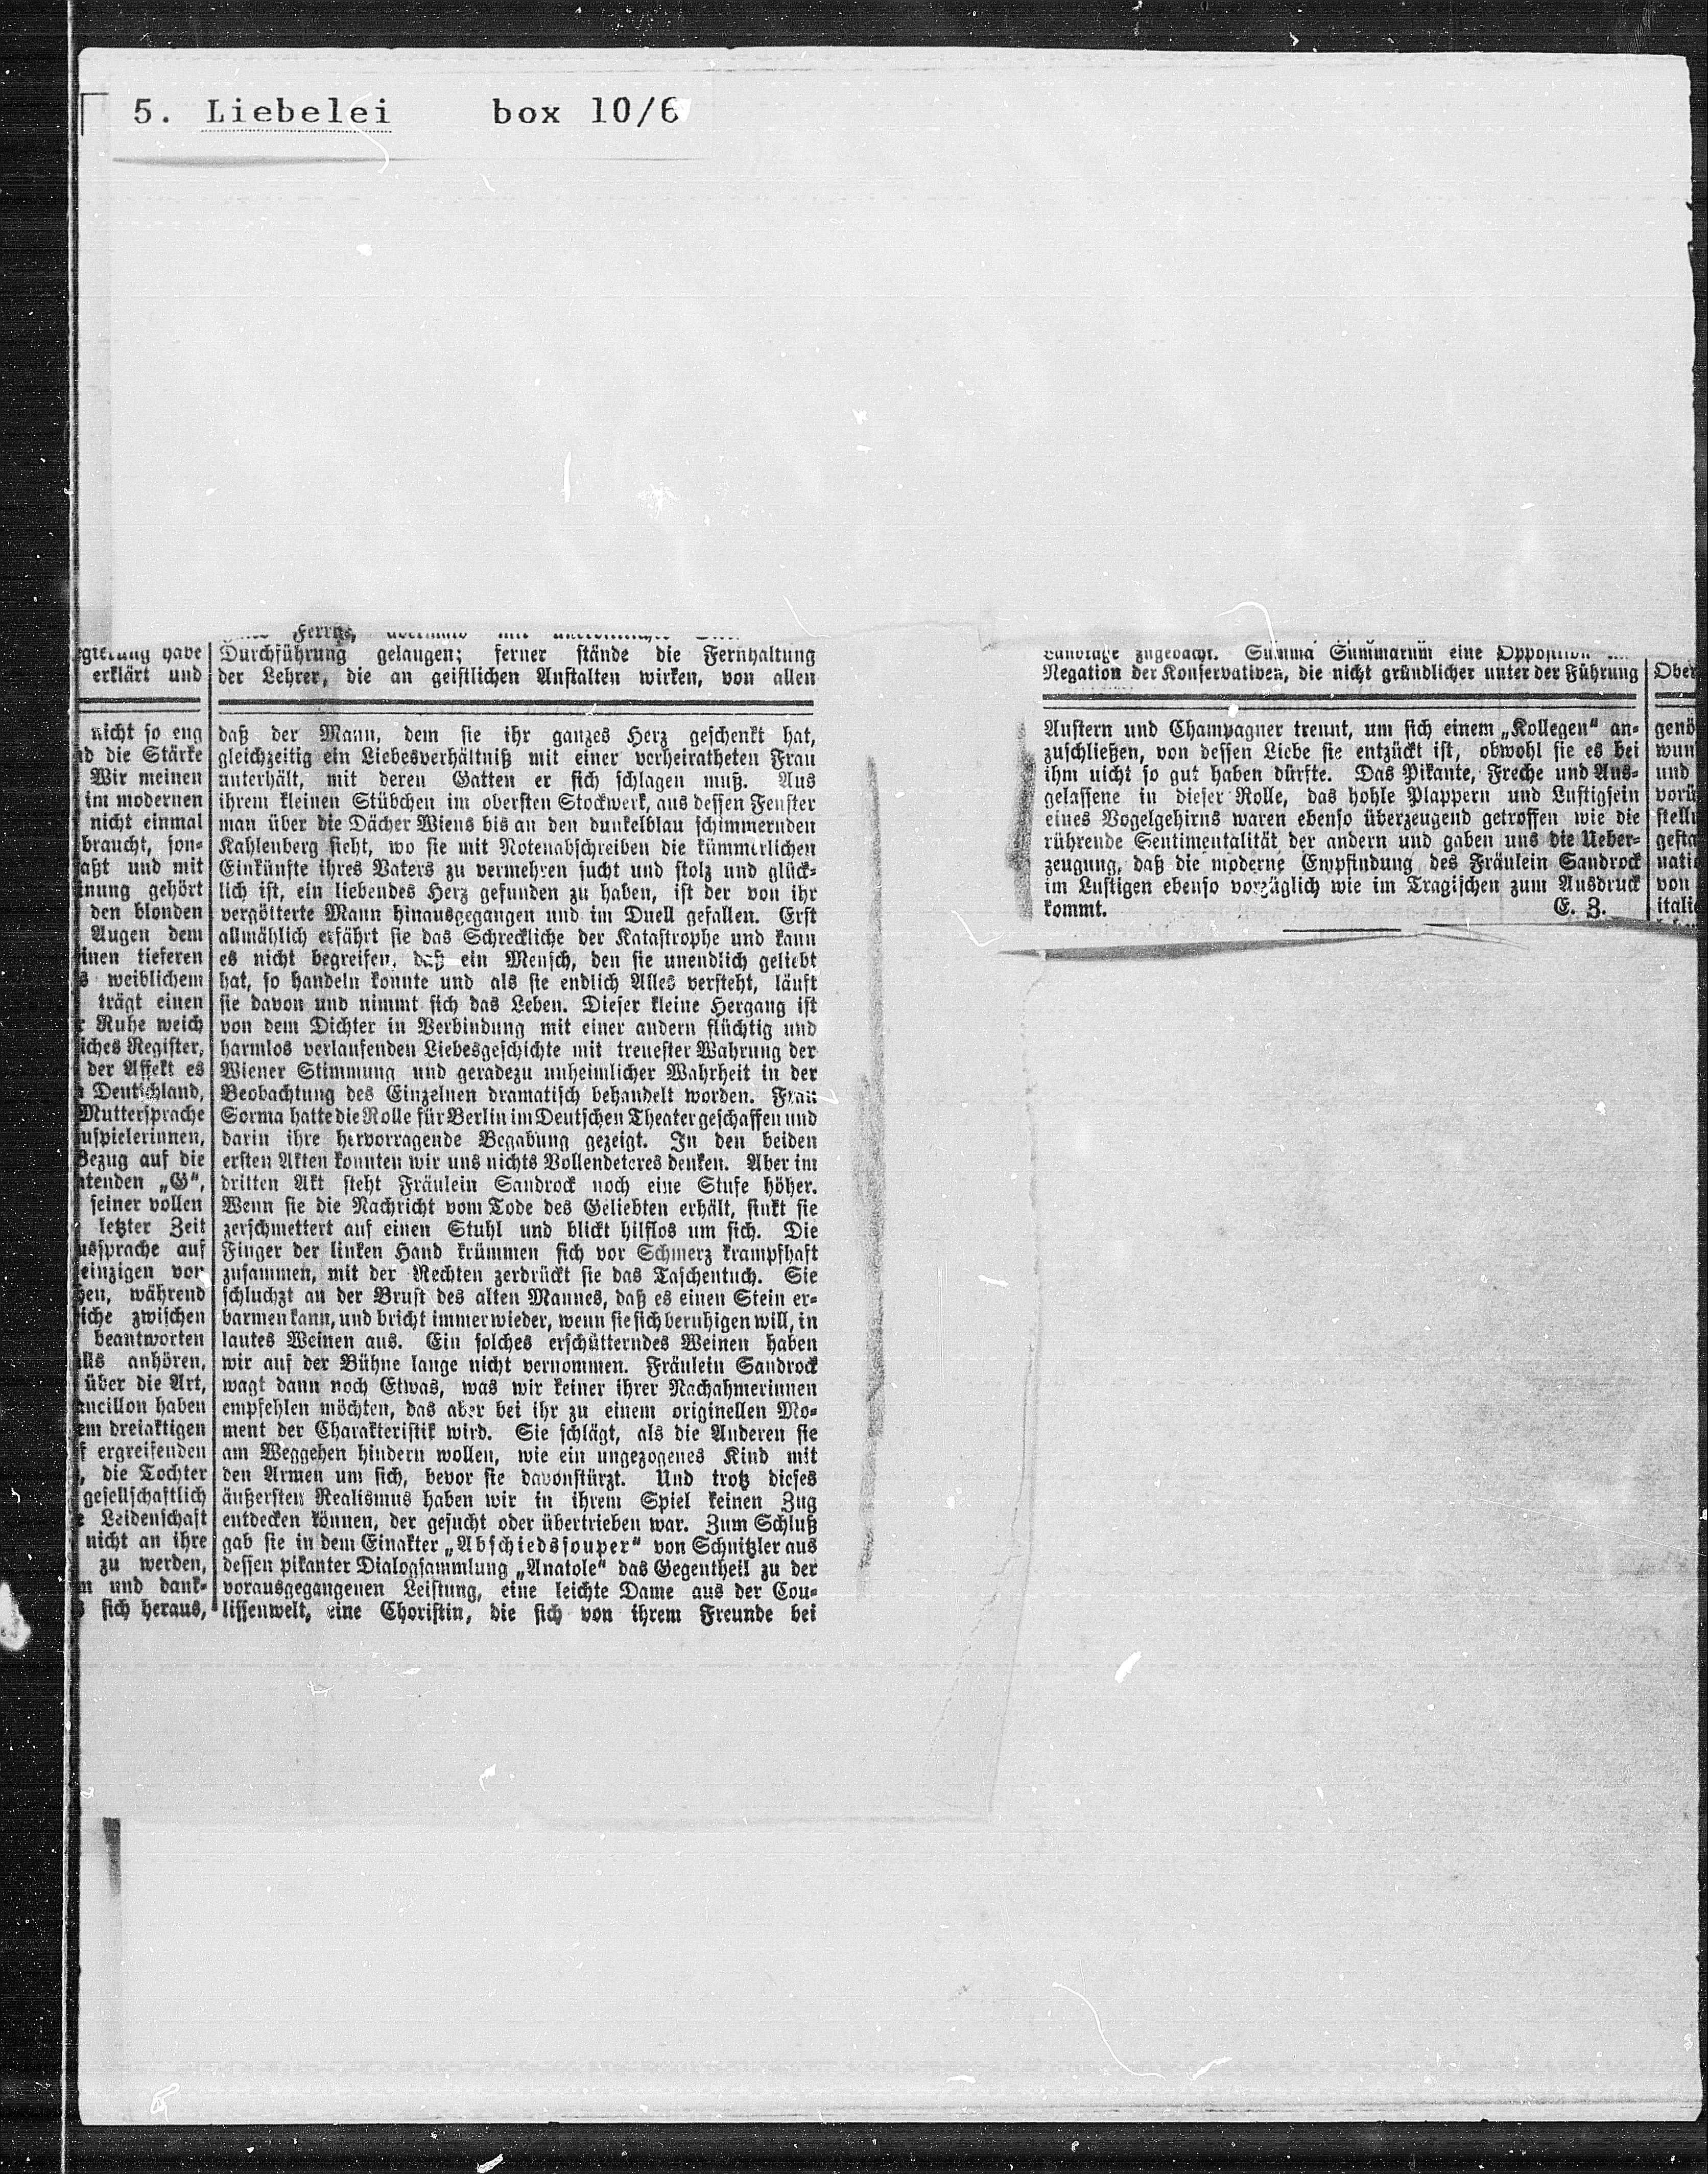 5. Liebelei box 10/6
erklärt und
nicht so eng
die Stärke
Wir meinen
im modernen
nicht einmal
braucht, son-
und mit
gehört
den blonden
Augen dem
tieferen
weiblichem
trägt einen
Ruhe weich
Register,
der Affekt es
Deutschland,
Muttersprache
Bezug auf die
„G“,
seiner vollen
letzter Zeit
auf
einzigen vor
während
zwischen
beantworten
anhören,
über die Art,
haben
dreiaktigen
ergreifenden
die Tochter
gesellschaftlich
Leidenschaft
nicht an ihre
zu werden,
und dank-
sich heraus,
Durchführung gelangen; ferner stände die Fernhaltung
der Lehrer, die an geistlichen Anstalten wirken, von allen
daß der Mann, dem sie ihr ganzes Herz geschenkt hat,
gleichzeitig ein Liebesverhältniß mit einer verheiratheten Frau
unterhält, mit deren Gatten er sich schlagen muß. Aus
ihrem kleinen Stübchen im obersten Stockwerk, aus dessen Fenster
man über die Dächer Wiens bis an den dunkelblau schimmernden
Kahlenberg sieht, wo sie mit Notenabschreiben die kümmerlichen
Einkünfte ihres Vaters zu vermehren sucht und stolz und glück-
lich ist, ein liebendes Herz gefunden zu haben, ist der von ihr
vergötterte Mann hinausgegangen und im Duell gefallen. Erst
allmählich erfährt sie das Schreckliche der Katastrophe und kann
es nicht begreifen, daß ein Mensch, den sie unendlich geliebt
hat, so handeln konnte und als sie endlich Alles versteht, läuft
sie davon und nimmt sich das Leben. Dieser kleine Hergang ist
von dem Dichter in Verbindung mit einer andern flüchtig und
harmlos verlaufenden Liebesgeschichte mit treuester Wahrung der
Wiener Stimmung und geradezu unheimlicher Wahrheit in der
Beobachtung des Einzelnen dramatisch behandelt worden. Frau
Sorma hatte die Rolle für Berlin im Deutschen Theater geschaffen und
darin ihre hervorragende Begabung gezeigt. In den beiden
ersten Akten konnten wir uns nichts Vollendeteres denken. Aber im
dritten Akt steht Fräulein Sandrock noch eine Stufe höher.
Wenn sie die Nachricht vom Tode des Geliebten erhält, sinkt sie
zerschmettert auf einen Stuhl und blickt hilflos um sich. Die
Finger der linken Hand krümmen sich vor Schmerz krampfhaft
zusammen, mit der Rechten zerdrückt sie das Taschentuch. Sie
schluchzt an der Brust des alten Mannes, daß es einen Stein er-
barmen kann, und bricht immer wieder, wenn sie sich beruhigen will, in
lautes Weinen aus. Ein solches erschütterndes Weinen haben
wir auf der Bühne lange nicht vernommen. Fräulein Sandrock
wagt dann noch Etwas, was wir keiner ihrer Nachahmerinnen
empfehlen möchten, das aber bei ihr zu einem originellen Mo-
ment der Charakteristik wird. Sie schlägt, als die Anderen sie
am Weggehen hindern wollen, wie ein ungezogenes Kind mit
den Armen um sich, bevor sie davonstürzt. Und trotz dieses
äußersten Realismus haben wir in ihrem Spiel keinen Zug
entdecken können, der gesucht oder übertrieben war. Zum Schluß
gab sie in dem Einakter „Abschiedssouper“ von Schnitzler aus
dessen pikanter Dialogsammlung „Anatole“ das Gegentheil zu der
vorausgegangenen Leistung, eine leichte Dame aus der Cou-
lissenwelt, eine Choristin, die sich von ihrem Freunde bei
zugedacht. Summa Summarum eine Opposition
Negation der Konservativen, die nicht gründlicher unter der Führung
Austern und Champagner trennt, um sich einem „Kollegen“ an-
zuschließen, von dessen Liebe sie entzückt ist, obwohl sie es bei
ihm nicht so gut haben dürfte. Das Pikante, Freche und Aus-
gelassene in dieser Rolle, das hohle Plappern und Lustigsein
eines Vogelgehirns waren ebenso überzeugend getroffen wie die
rührende Sentimentalität der andern und gaben uns die Ueber-
zeugung, daß die moderne Empfindung des Fräulein Sandrock
im Lustigen ebenso vorzüglich wie im Tragischen zum Ausdruck
kommt. E. Z.
und
von